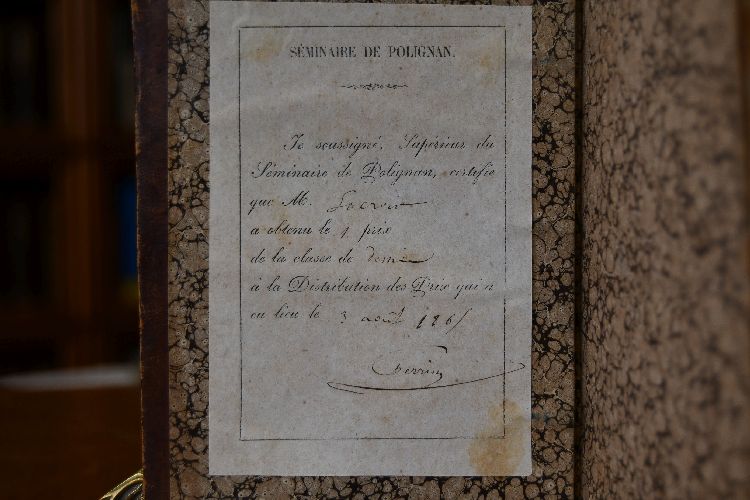 SÉMINAIRE DE POLIGNAN.
Je soussigné, Supérieur du
Séminaire de Polignan, certifie
que M.
a obtenu le 1 prix
de la classe de
à la Distribution des Prix qui a
eu lieu le 3 août
Perrin